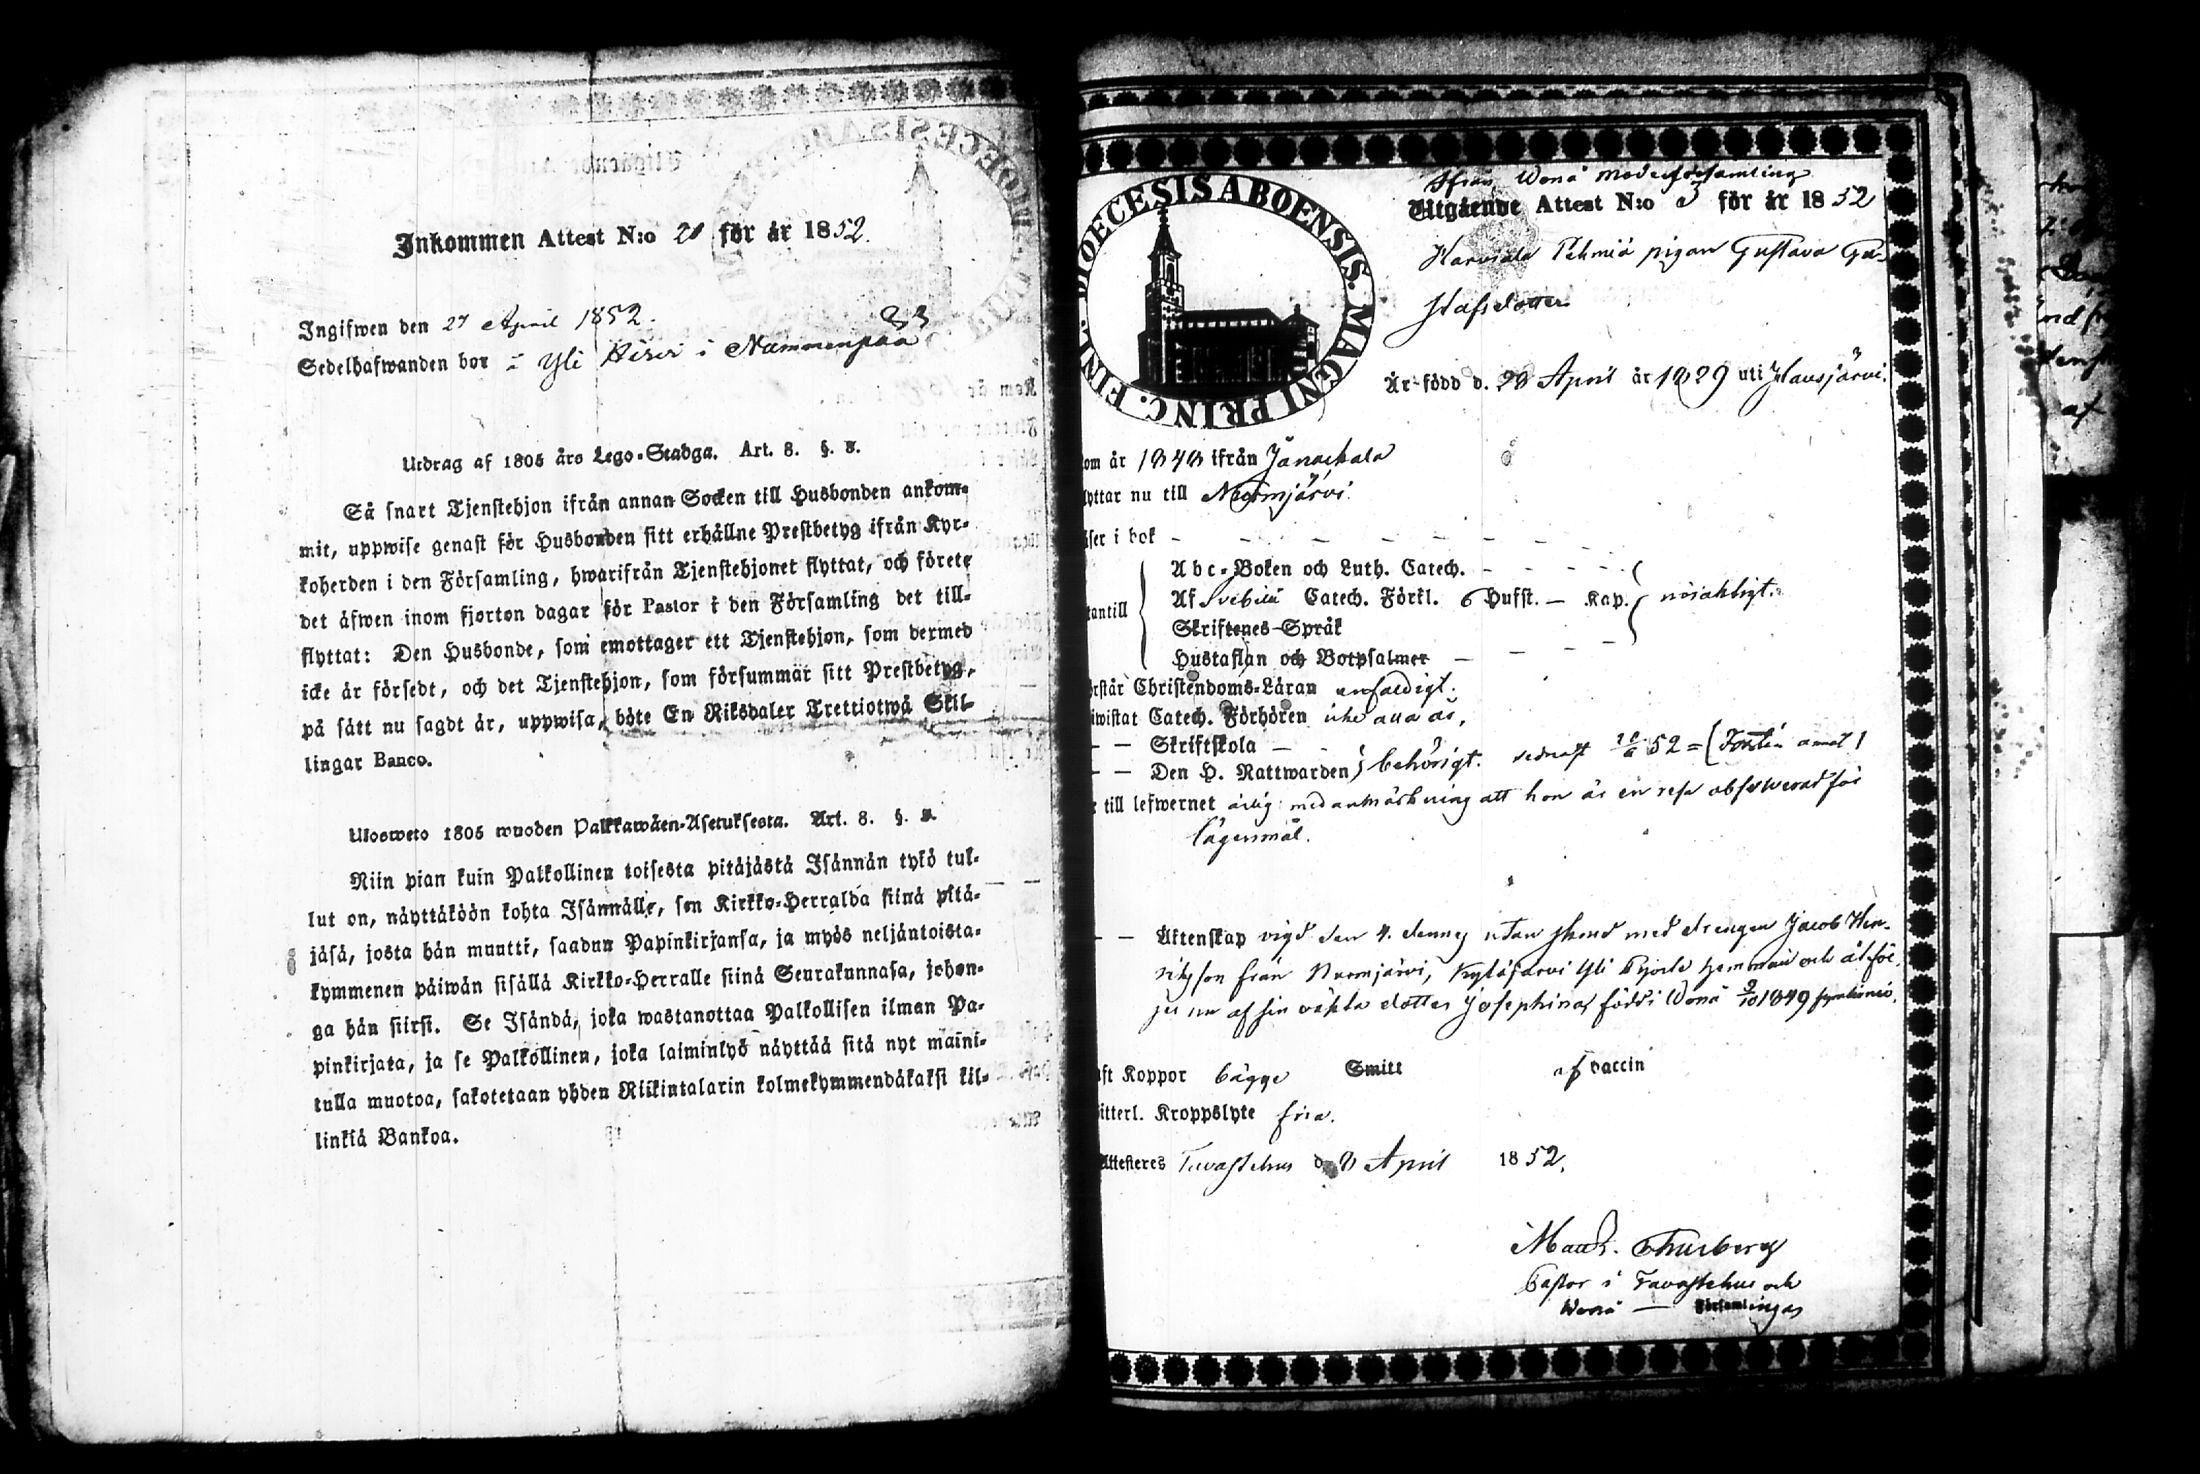 Inkommen Attest N:o 20 för år 1852.
Ingifwen den 27 April 1852.
33
Sedelhafwanden bor i Yli i Nummenpää
Utdrag af 1805 års Lego-Stadga. Art. 8. §. 8.
Så snart Tjenstehjon ifrån annan Socken till Husbonden ankom-
mit, uppwise genast för Husbonden sitt erhållne Prestbetyg ifrån Kyr-
koherden i den Församling, hwarifrån Tjenstehjonet flyttat, och förete
det äfwen inom fjorton dagar för Pastor i den Församling det till-
flyttat: Den Husbonde, som emottager ett Tjenstehjon, som dermed
icke är försedt, och det Tjenstehjon, som försummar sitt Prestbetyg,
på sätt nu sagdt är, uppwisa, böte En Riksdaler Trettiotwå Skil-
lingar Banco.
Ulosweto 1805 wuoden Palkkawäen-Asetuksesta. Art. 8. §. 8.
Niin pian kuin Palkollinen toisesta pitäjästä Isännän tykö tul-
lut on, näyttäköön kohta Isännälle, sen Kirkko-Herralda siinä pitä-
jäsä, josta hän muutti, saadun Papinkirjansa, ja myös neljäntoista-
kymmenen päiwän sisällä Kirkko-Herralle siinä Seurakunnasa, johon-
ga hän siirsi. Se Isändä, joka wastanottaa Palkollisen ilman Pa-
pinkirjata, ja se Palkollinen, joka laiminlyö näyttää sitä nyt maini-
tulla muotoa, sakotetaan yhden Riikintalarin kolmekymmendäkaksi kil-
linkiä Bankoa.
DIOECESIS ABOENSIS. MAGNI PRINC. FINL.
Ifrån Wonå Moderförsamling
Utgående Attest N:o 3 för år 1852
Harviala pigan Gustava Gu-
stafsdotter
Är född d. 28 April år 1829 uti Hausjärvi.
om år 1848 ifrån Janackala
lyttar nu till Nurmijärvi.
äser i bok
Abc-Boken och Luth. Catech.
tantill Af Svebilii Catech. Förkl. 6 Hufst. — Kap. nöjaktigt.
Skriftenes Språk
Hustaflan och Botpsalmer
örstår Christendoms-Läran enfaldigt.
iwistat Catech. Förhören icke alla år,
— — Skriftskola
— — Den H. Nattwarden behörigt. sednast 52
r till lefwernet ärlig med anmärkning att hon är en resa absolverad för
lägersmål.
— — Äktenskap vigd den 4. dennes utan med drengen Jacob Hen-
riksson från Nurmijärvi, Kytäjärvi Yli hemman och åtföl-
jes nu af sin oäkta dotter Josephina, född i Wonå 9/10 1849
aft Koppor bägge Smitt af vaccin
itterl. Kroppslyte fria.
Attesteras Tavastehus d. 8 April 1852.
Thurberg
Pastor i Tavastehus och
Wonå — Församlingar